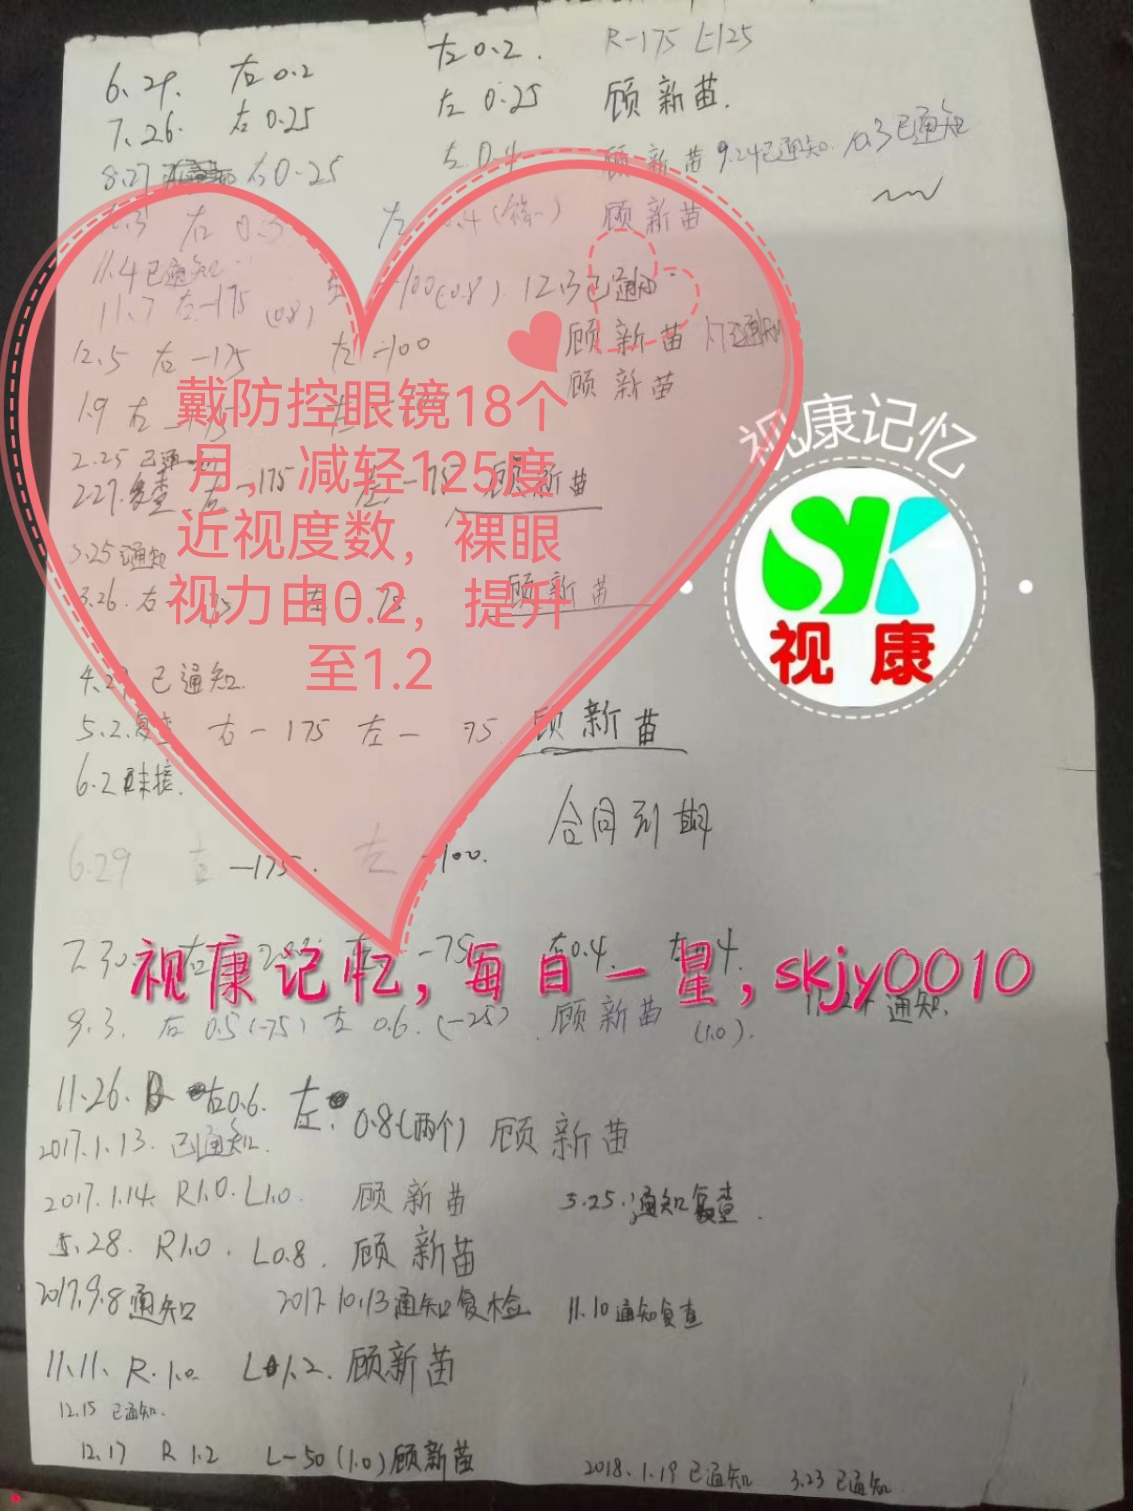 6.29. 右0.2 左0.2. R-175 L-125
7.26. 右0.25 左0.25 顾新苗.
8.27 右0.25 左0.4 顾新苗 9.24已通知. 10.3已通知
右 左 顾新苗
11.4已通知
11.7 右-175 (0.8) -100(0.8) 12.3已通知
12.5 右-175 左-100 顾新苗
1.9 右 左 顾新苗
2.25 已通
2.27.复查 右-175 左-75 顾新苗
3.25通知
3.26. 右- 左-75 顾新苗
戴防控眼镜18个
月,减轻125度
近视度数,裸眼
视力由0.2,提升
至1.2
视康记忆
SK
视康
已通知
5.2.复查 右-175 左- 75 顾新苗
6.2未接.
合同到期
6.29 -175. 左 -100.
7.30. 右 左-75 右0.4
视康记忆,每日一星,skjy0010
9.3. 右0.5(-75) 左0.6.(-25) 顾新苗 (1.0). 通知.
11.26. 右0.6. 左: 0.8(两个) 顾新苗
2017.1.13. 已通知.
2017.1.14. R1.0. L1.0. 顾新苗 3.25.通知复查.
5.28. R1.0. L0.8. 顾新苗
2017.9.8通知 2017.10.13通知复检 11.10通知复查
11.11. R.1.0. L1.2. 顾新苗
12.15 已通知.
12.17 R1.2 L-50(1.0)顾新苗
2018.1.19已通知 3.23已通知